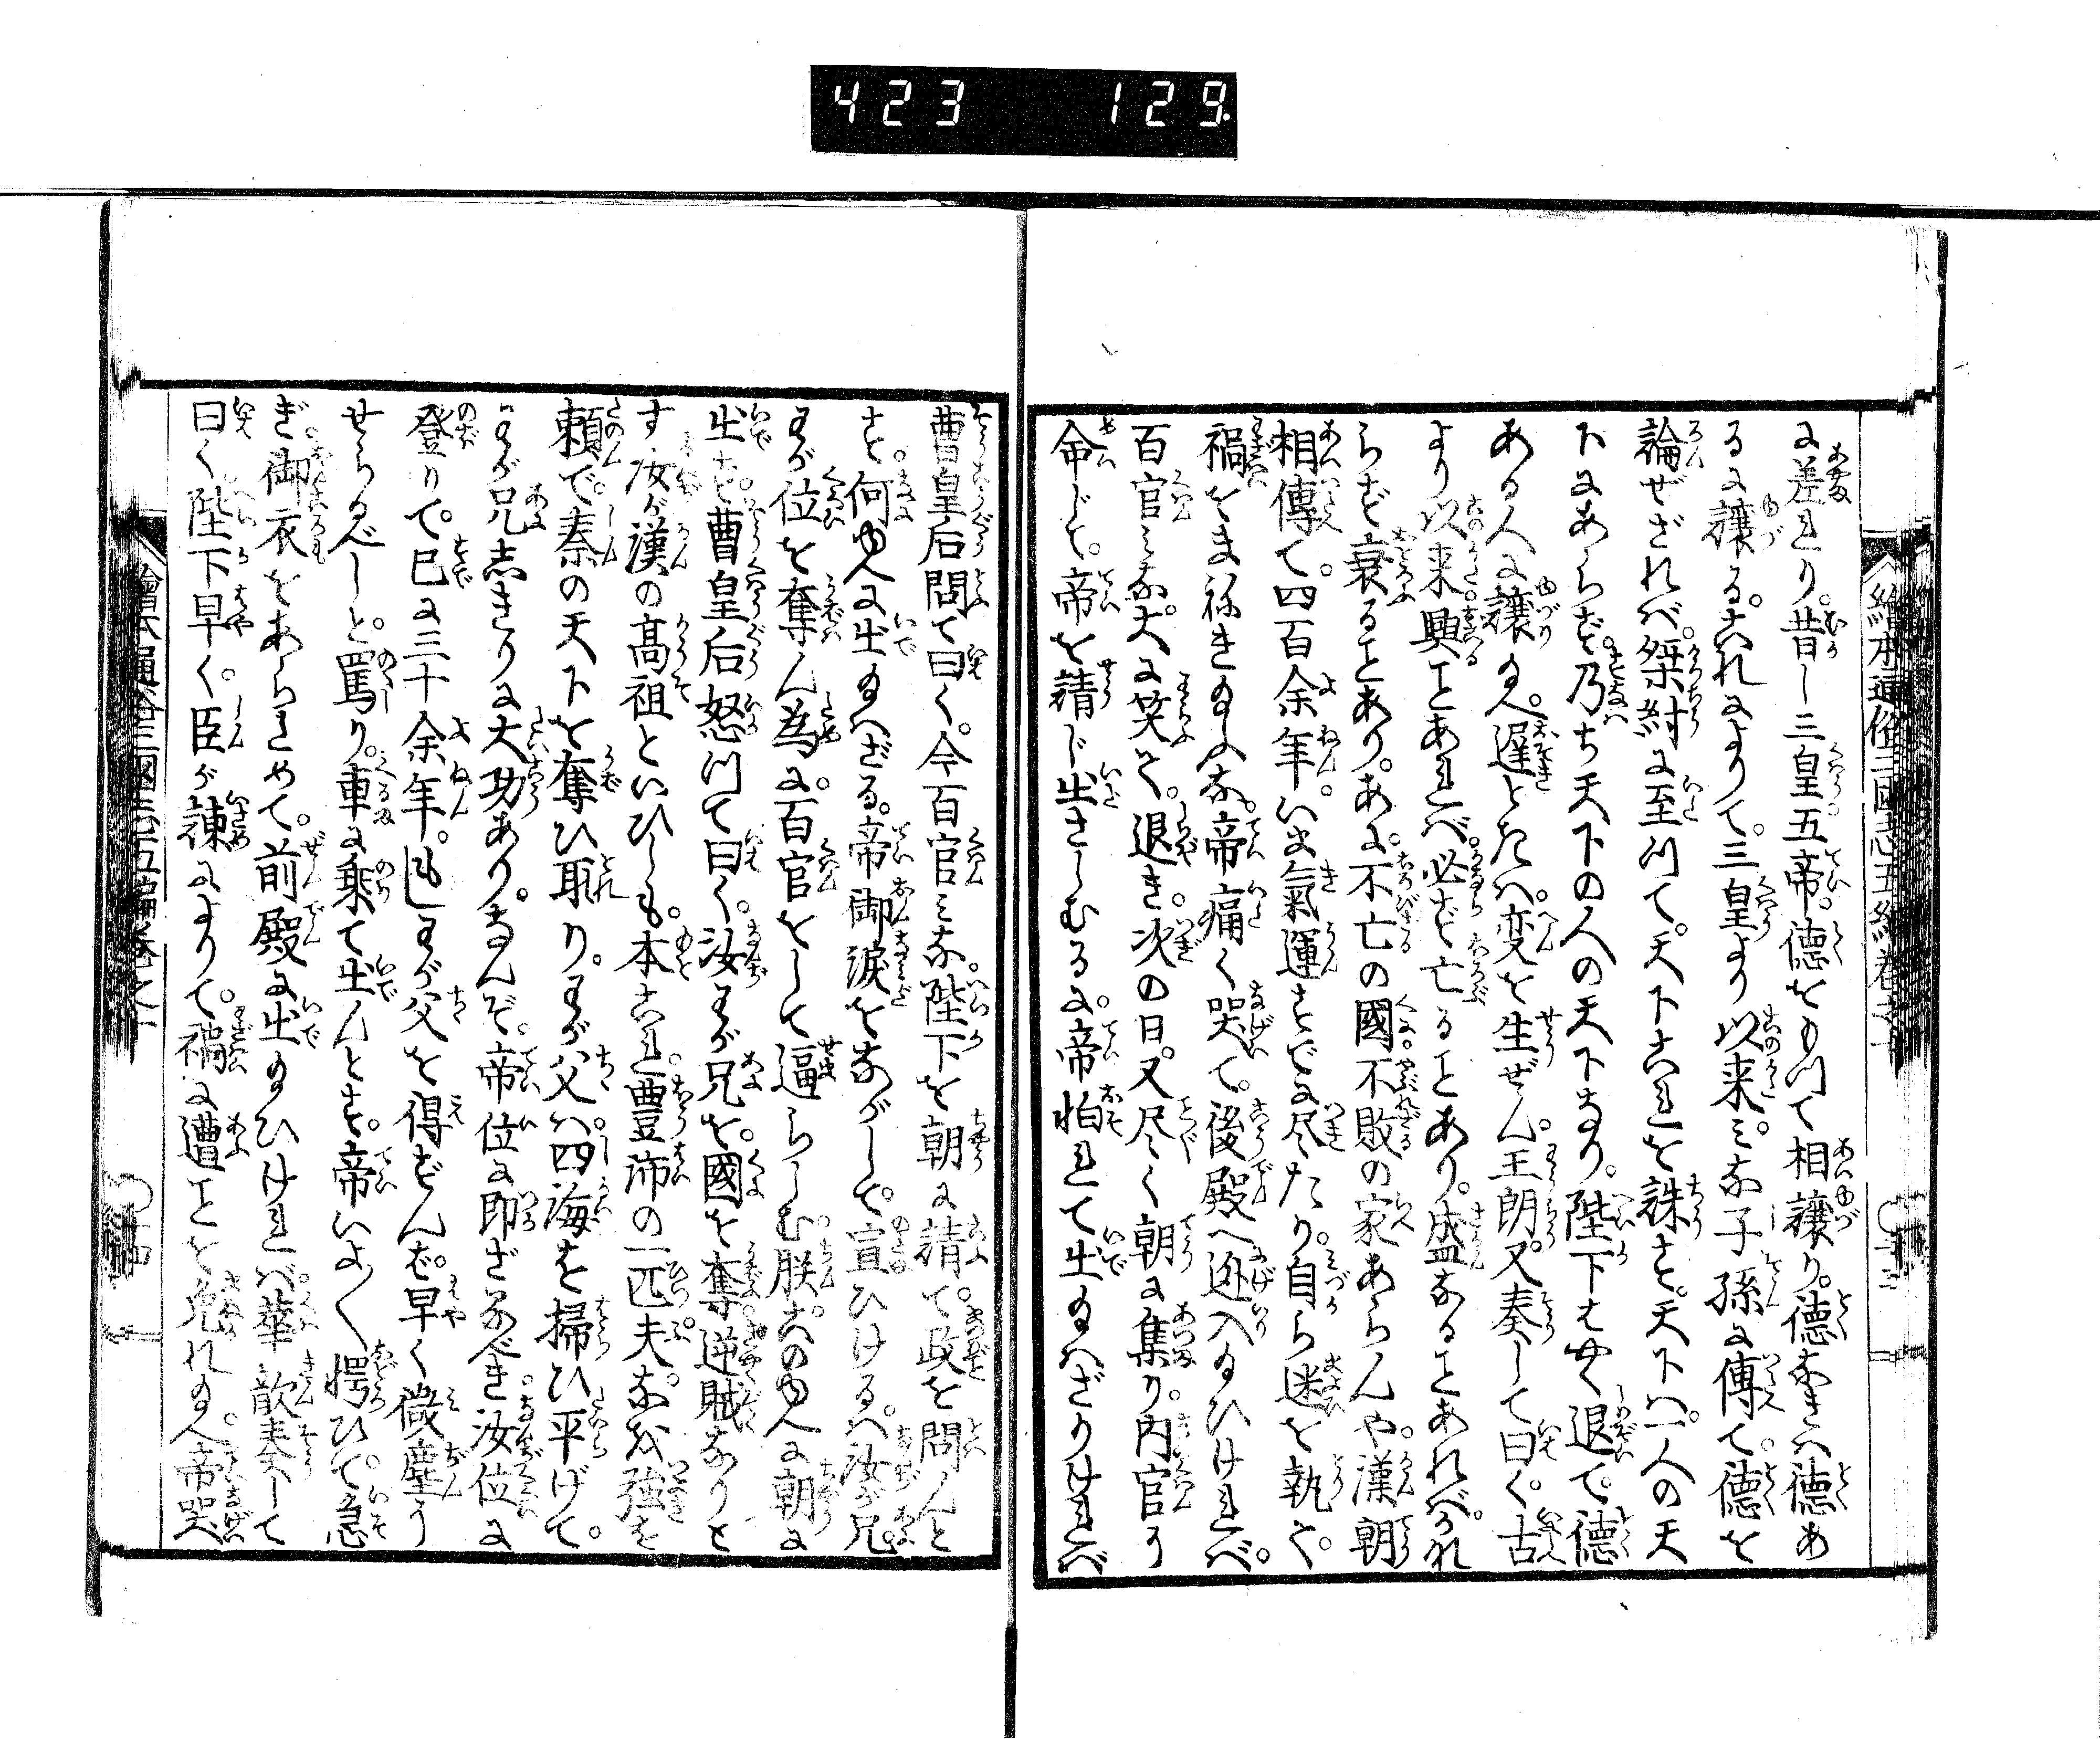 423 129.
に差り。昔し三皇五帝。徳をもつて相譲り。徳なきハ徳あ
るに譲る。これによりて。三皇より以来。ミな子孫に傳て。徳を
論ぜざれバ。桀紂に至つて。天下これを誅す。天下ハ一人の天
下にあらず。乃ち天下の人の天下なり。陛下はやく退て。徳
ある人に譲り給へ。遅とたハ。変を生ぜん。王朗又奏して曰く。古
より以来。興ことあれバ。必ず亡ることあり。盛なることあれバ。かな
らず衰ることあり。あに。不亡の國。不敗の家あらんや。漢朝
相傳て。四百余年。いま氣運すでに尽たり。自ら迷を執て。
禍をまねき給ふな。帝痛く哭て。後殿へ迯入給ひけれバ。
百官ミな。大に笑て。退き。次の日。又尽く朝に集り。内官に
命じて。帝を請じ出さしむるに。帝怕れて出給ハざりけれバ
曹皇后問て曰く。今百官ミな。陛下を朝に請て。政を問んと
す。何ゆへに出給ハざる。帝御涙をながして。宣ひけるハ。汝が兄。
わが位を奪ん為に。百官をして逼らしむ。朕このゆへに朝に
出ず。曹皇后怒つて曰く。汝わが兄を。國を奪逆賊なりと
す。汝が漢の高祖といひしも。本これ。豊沛の一匹夫。なを強を
頼で。秦の天下を奪ひ取り。わが父ハ。四海を掃ひ平げて。
わが兄しきりに大功あり。なんぞ。帝位に即ざるべき。汝位に
登りて。已に三十余年。もしわが父を得ずんバ。早く微塵に
せらるべしと。罵り。車に乗て出んとす。帝いよ〳〵愕ひて。急
ぎ。御衣をあらためて。前殿に出給ひけれバ。華歆奏して
曰く。陛下早く。臣が諌によりて。禍に遭ことを免れ給へ。帝哭
繪本通俗三國志五編巻之